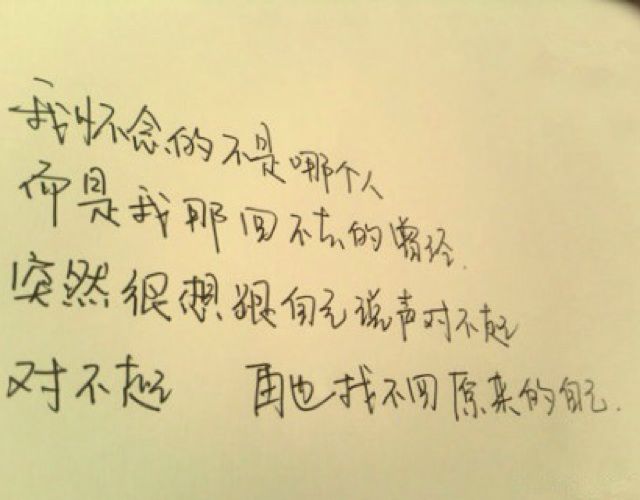 我怀念的不是哪个人
而是我那回不去的曾经.
突然很想跟自己说声对不起
对不起 再也找不回原来的自己.